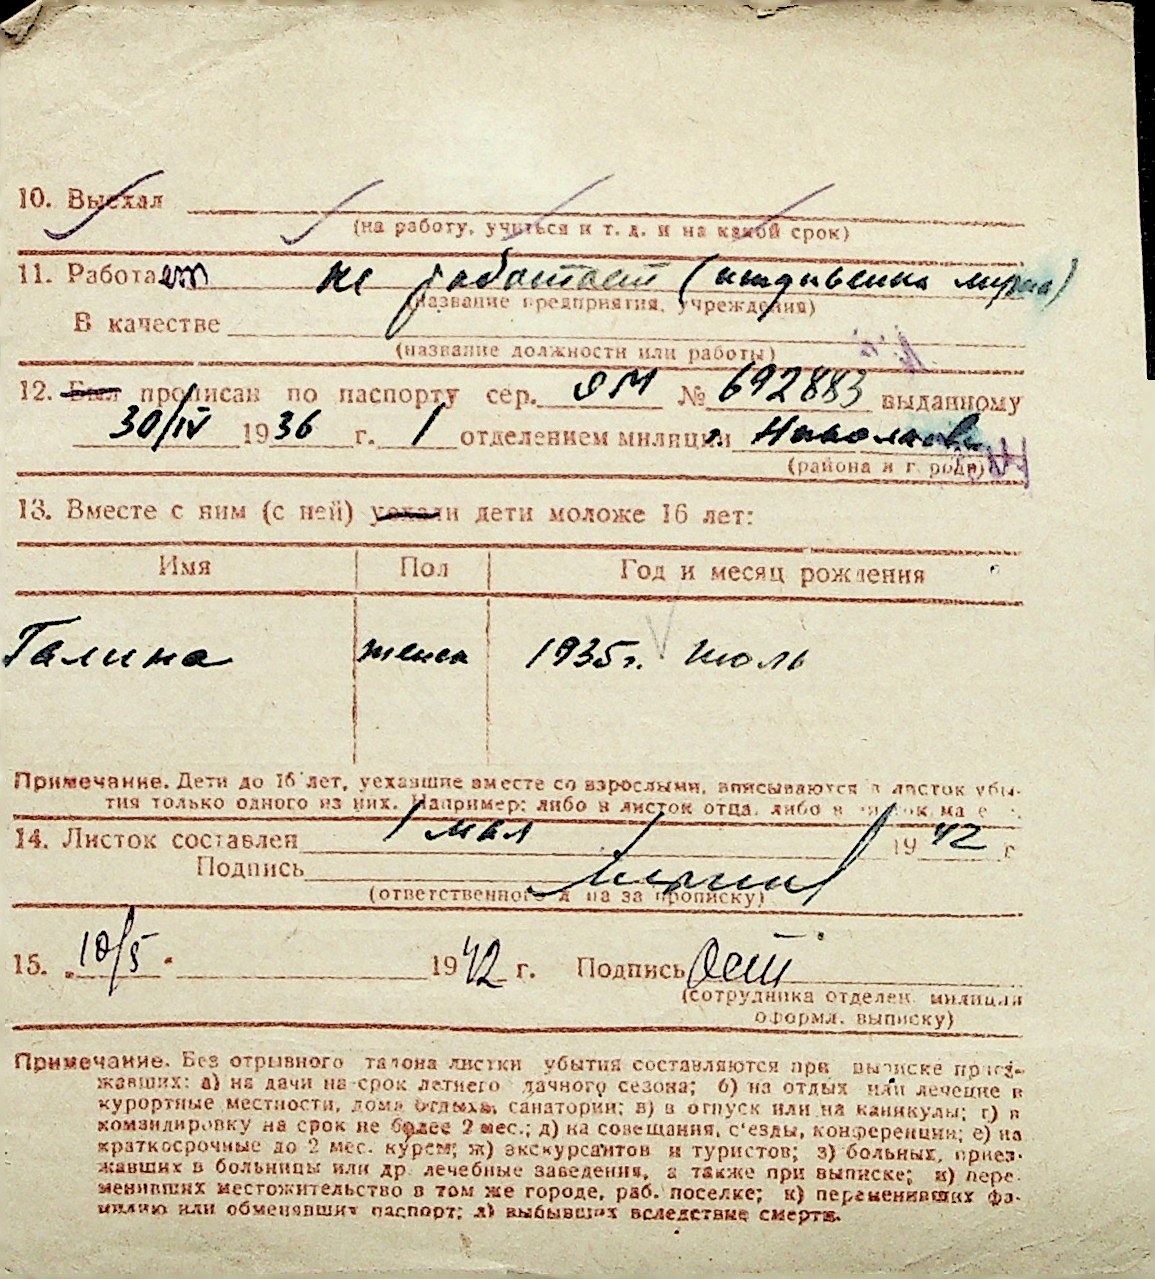 10. Выехал
(на работу, учиться и т. д. и на какой срок)
11. Работает не работает (иждивенка мужа)
(название предприятия, учреждения)
В качестве
(название должности или работы)
12. Был прописан по паспорту сер. ЯМ № 692883 выданному
30/IV 1936 г. 1 отделением милиции г. Николаев
(района и города)
13. Вместе с ним (с ней) уехали дети моложе 16 лет:
Имя Пол Год и месяц рождения
Галина женск 1935 г. июль
Примечание. Дети до 16 лет, уехавшие вместе со взрослыми, вписываются в листок убы-
тия только одного из них. Например: либо в листок отца, либо в листок матери.
14. Листок составлен 1 мая 1942 г
Подпись
(ответственного лица за прописку)
15. 10/5 1942 г. Подпись
(сотрудника отделен. милиции
оформл. выписку)
Примечание. Без отрывного талона листки убытия составляются при выписке приез-
жавших: а) на дачи на срок летнего дачного сезона; б) на отдых или лечение в
курортные местности, дома отдыха, санатории; в) в отпуск или на каникулы; г) в
командировку на срок не более 2 мес.; д) на совещания, с'езды, конференции; е) на
краткосрочные до 2 мес. курсы; ж) экскурсантов и туристов; з) больных, приез-
жавших в больницы или др. лечебные заведения, а также при выписке; и) пере-
менивших местожительство в том же городе, раб. поселке; к) переменивших фа-
милию или обменявших паспорт; л) выбывших вследствие смерти.